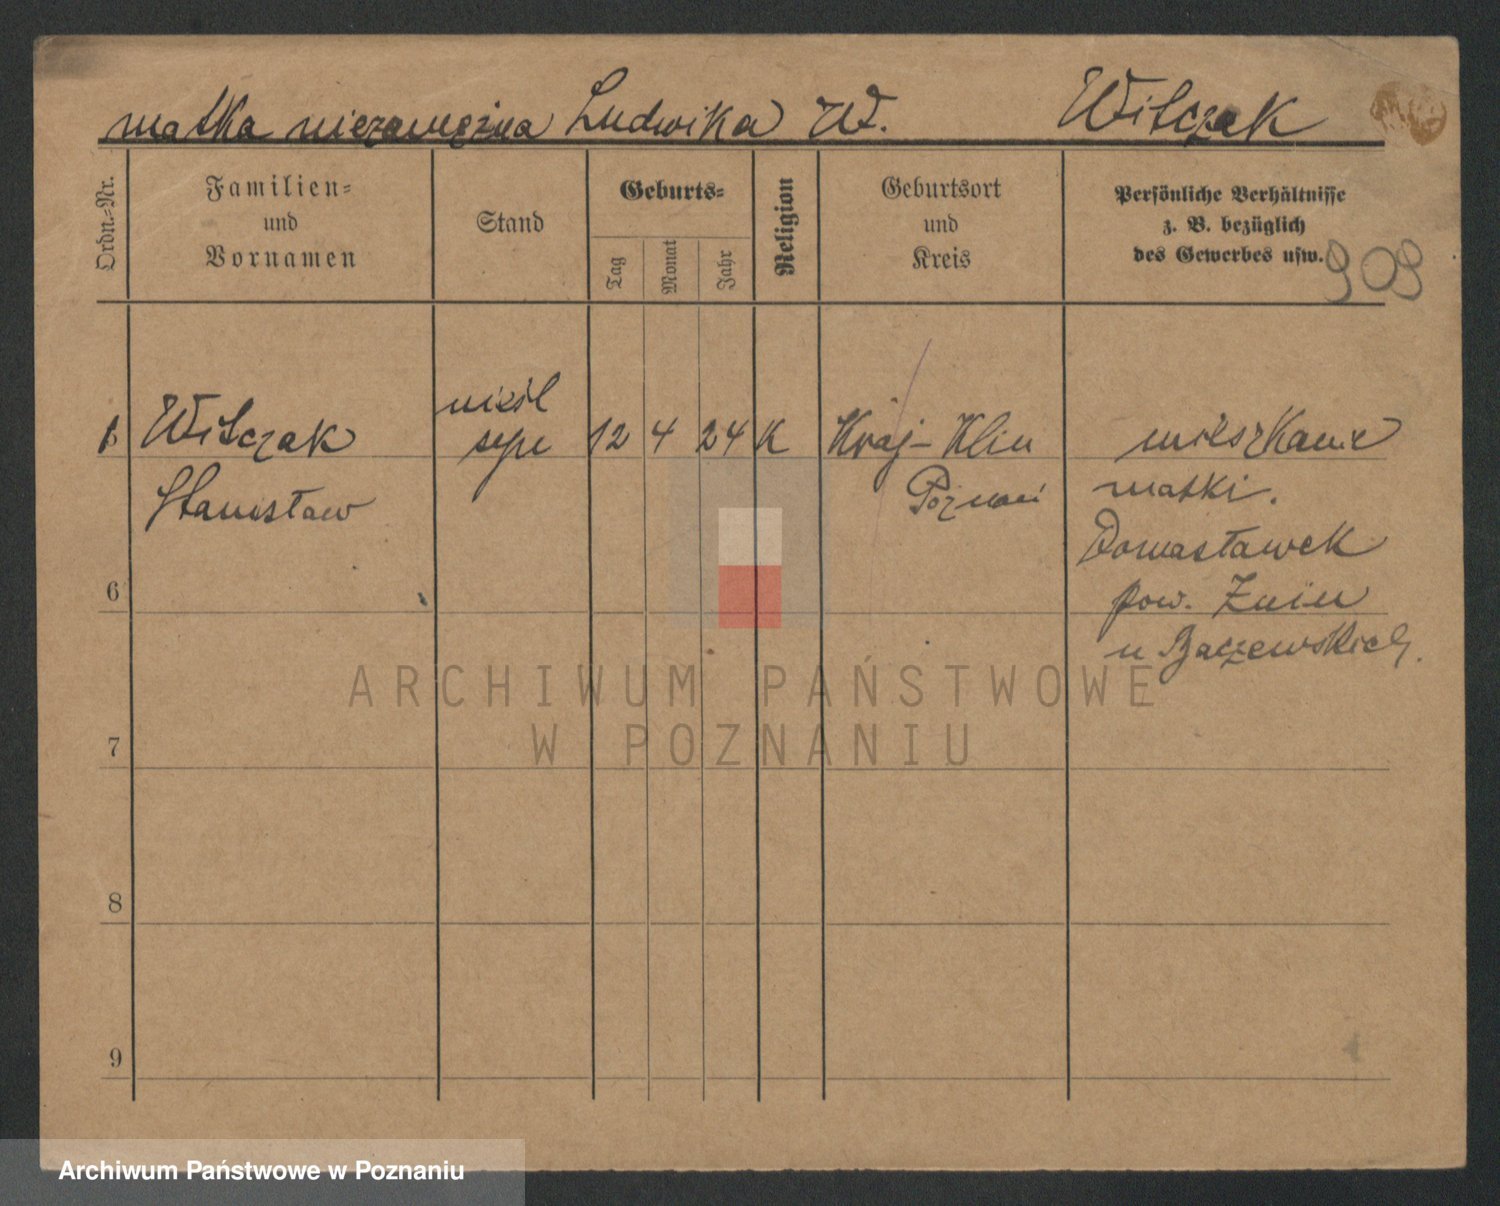 matka niezamężna Ludwika W. Witczak
Ordn.-Nr.
Familien-
und
Vornamen
Stand
Geburts-
Tag
Monat
Jahr
Religion
Geburtsort
und
Kreis
Persönliche Verhältnisse
z. B. bezüglich
des Gewerbes usw.
909
Witczak
Stanisław
nieśl
syn
12 4 24 K
Kraj-Klin
Poznań
mieszkanie
matki.
Domasławek
pow. Żnin
u Baczewskich.
6
7
8
9
ARCHIWUM PAŃSTWOWE
W POZNANIU
Archiwum Państwowe w Poznaniu